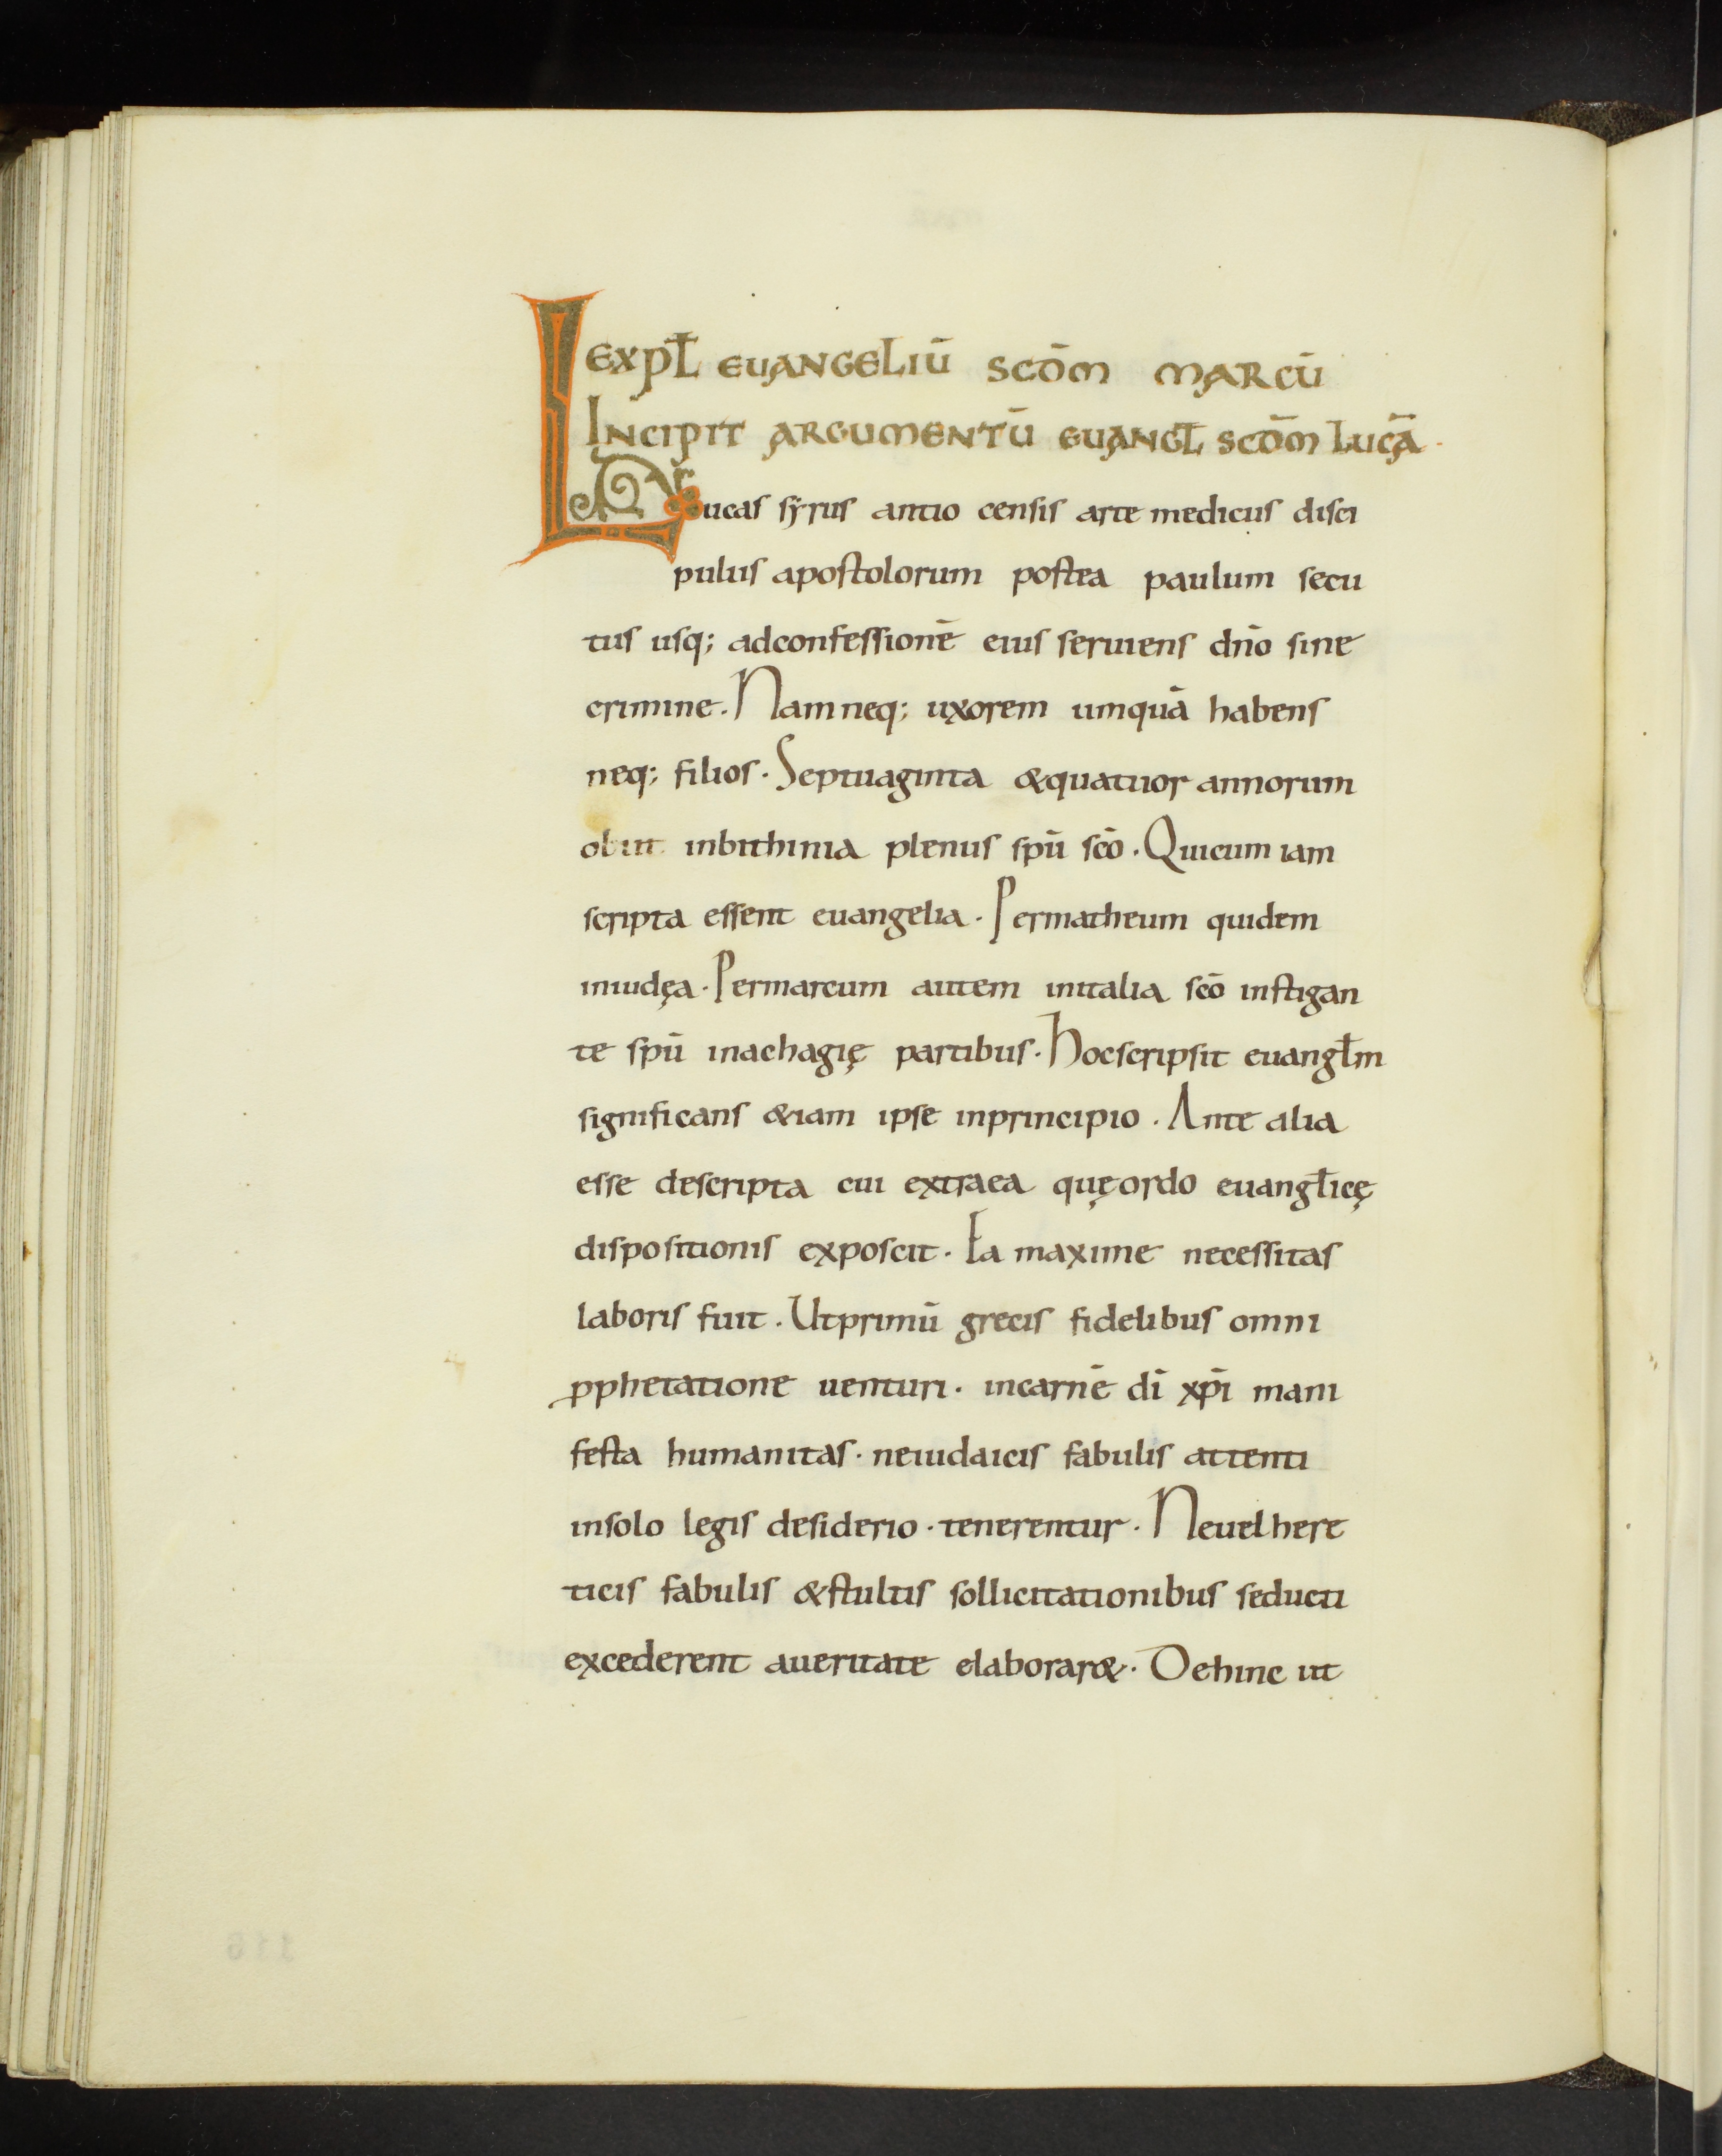 EXPŁ EUANGELIŪ SCD̄M MARCŪ
INCIPIT ARGUMENTŪ EUANGŁ SCD̄M LUCĀ.
Lucas syrus antio censis arte medicus disci
pulus apostolorum postea paulum secu
tus usq; adconfessionē eius seruiens dn̄o sine
crimine. Nam neq; uxorem umquā habens
neq; filios. Septuaginta &quatuor annorum
obiit inbithinia plenus spū scō. Quicum iam
scripta essent euangelia. Permatheum quidem
iniudęa. Permarcum autem initalia scō instigan
te spū inachagię partibus. Hocscripsit euangłm
significans &iam ipse inprincipio. Ante alia
esse descripta cui extraea quęordo euangłicę
dispositionis exposcit. Ea maxime necessitas
laboris fuit. Utprimū grecis fidelibus omni
ꝓphetatione uenturi. incarnē dī xp̄i mani
festa humanitas. neiudaicis fabulis attenti
insolo legis desiderio. tenerentur. Neuel here
ticis fabulis &stultis sollicitationibus seducti
excederent aueritate elaborar&. Dehinc ut